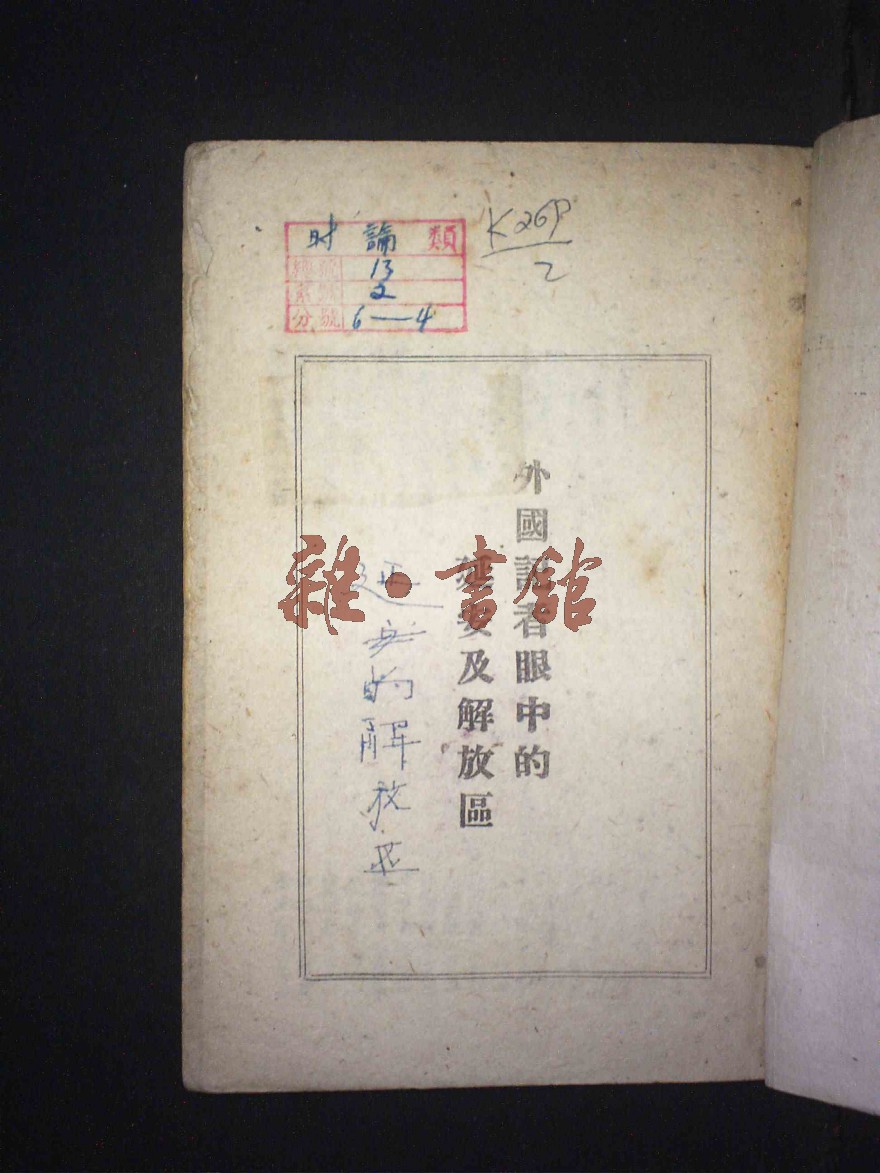 時 論 類
總號 13
套號 2
分號 6—4
K269
2
外國記者眼中的
延安及解放區
延安的解放区
雜·書館